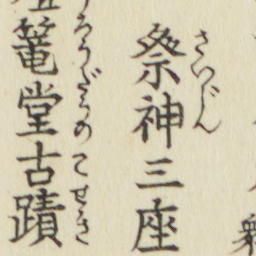 祭神三座
さいじん
篭堂古蹟
ろうだうのこせき